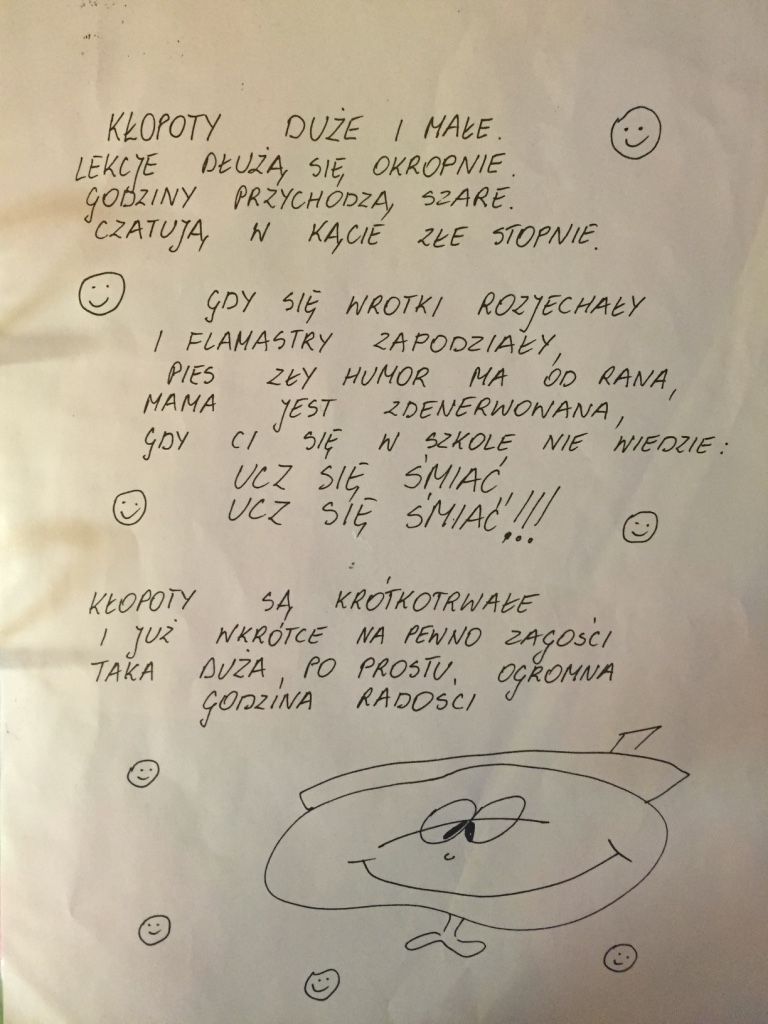 KŁOPOTY DUŻE I MAŁE.
LEKCJE DŁUŻĄ SIĘ OKROPNIE.
GODZINY PRZYCHODZĄ SZARE.
CZATUJĄ W KĄCIE ZŁE STOPNIE.
GDY SIĘ WROTKI ROZJECHAŁY
I FLAMASTRY ZAPODZIAŁY,
PIES ZŁY HUMOR MA OD RANA,
MAMA JEST ZDENERWOWANA,
GDY CI SIĘ W SZKOLE NIE WIEDZIE:
UCZ SIĘ ŚMIAĆ,
UCZ SIĘ ŚMIAĆ!!!...
KŁOPOTY SĄ KRÓTKOTRWAŁE
I JUŻ WKRÓTCE NA PEWNO ZAGOŚCI
TAKA DUŻA, PO PROSTU, OGROMNA
GODZINA RADOSCI